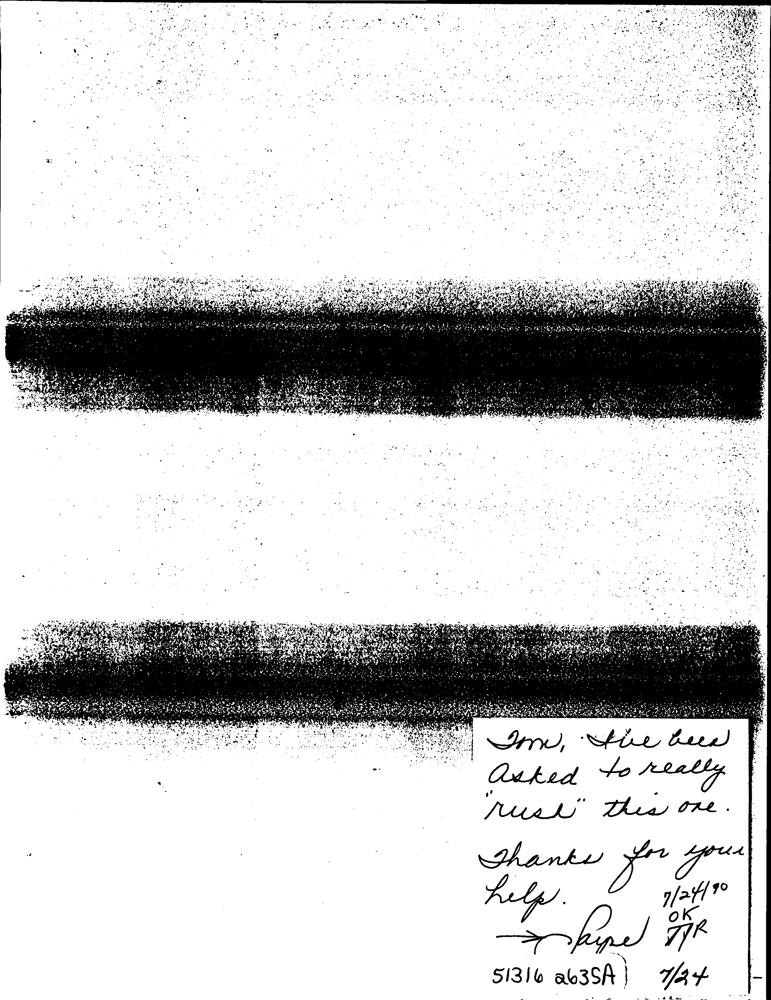 Tom, I've been
asked to really
"rush" this one.
Thanks for your
help.
7/24/90
OK
TJR
51316 2635A
7/24